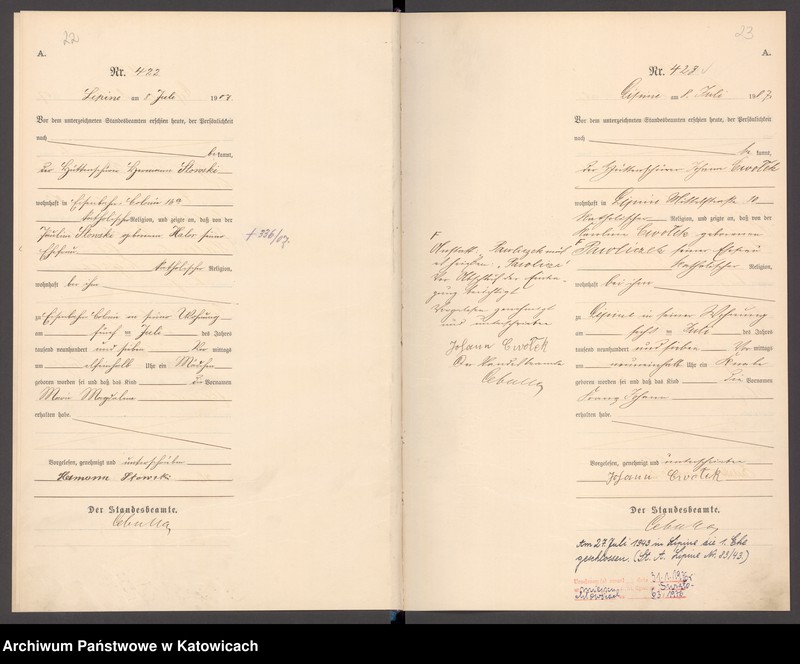 22
A.
Nr. 422
Lipine am 8 Juli 1907
Vor dem unterzeichneten Standesbeamten erschien heute, der Persönlichkeit
nach
bekannt,
der Hüttenschmied Hermann Slowski
wohnhaft in Eisenbahn-Colonie
katholischer Religion, und zeigte an, daß von der
Pauline Slowski geborenen seiner
Ehefrau
katholischer Religion,
wohnhaft bei ihm
zu Eisenbahn Colonie in seiner Wohnung
am fünf ten Juli des Jahres
tausend neunhundert und sieben Vor mittags
um elfeinhalb Uhr ein Mädchen
geboren worden sei und daß das Kind die Vornamen
Marie Magdalena
erhalten habe.
Vorgelesen, genehmigt und unterschrieben
Hermann Slowski
Der Standesbeamte.
Cebulla
+ 336/07.
23
A.
Nr. 423
Lipine am 8. Juli 1907
Vor dem unterzeichneten Standesbeamten erschien heute, der Persönlichkeit
nach
bekannt,
der Johann Cwołek
wohnhaft in Lipine Mittelstraße
katholischer Religion, und zeigte an, daß von der
Karoline Cwołek geborenen
F Pawliczek seiner Ehefrau
katholischer Religion,
wohnhaft bei ihm
zu Lipine in seiner Wohnung
am sechs ten Juli des Jahres
tausend neunhundert und sieben Vor mittags
um neuneinhalb Uhr ein Knabe
geboren worden sei und daß das Kind die Vornamen
Franz Johann
erhalten habe.
Vorgelesen, genehmigt und unterschrieben
Johann Cwołek
Der Standesbeamte.
Cebulla
F
Anstatt Pawliczek muß
es heißen
vor Abschluß der Eintra-
gung berichtigt
Vorgelesen genehmigt
und unterschrieben
Johann Cwołek
Der Standesbeamte
Cebulla
Am 27 Juli 1943 in Lipine die 1. Ehe
geschlossen. (St. A. Lipine Nr. 83/43)
Archiwum Państwowe w Katowicach